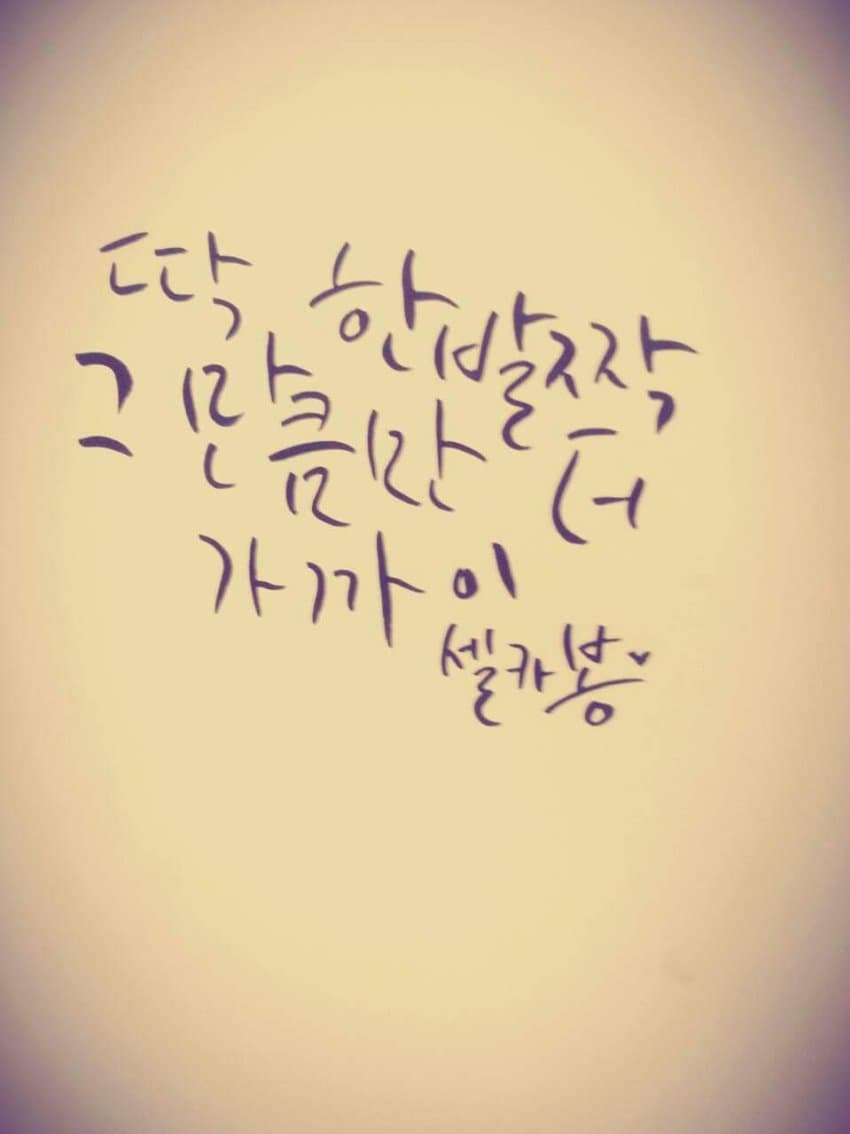 딱 한발짝
그 만큼만 더
가까이
셀카봉